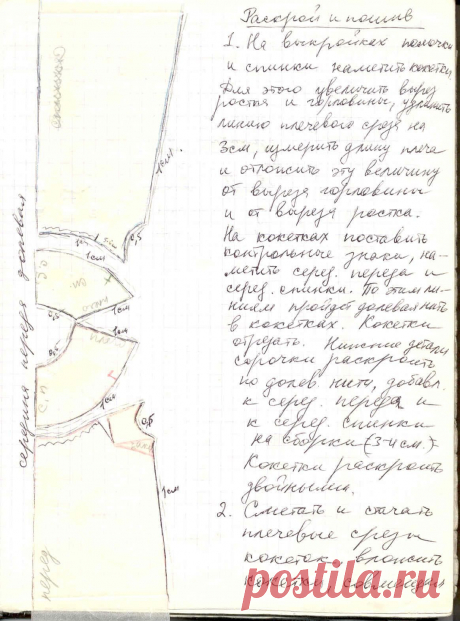 Раскрой и пошив
1. На выкройках полочки
и спинки наметить кокетки
Для этого увеличить вырез
ростка и горловины, удлинить
линию плечевого среза на
3см, измерить длину плеча
и отложить эту величину
от выреза горловины
и от выреза ростка.
На кокетках поставить
контрольные знаки, на-
метить серед. переда и
серед. спинки. По этим ли-
ниям пройдет долевая нить
в кокетках. Кокетки
отрезать. Нижние детали
сорочки раскроить
по долев. нити, добавл.
к серед. переда и
к серед. спинки
на сборки (3-4 см.)
Кокетки раскроить
двойными.
2. Сметать и стачать
плечевые срезы
кокеток вложить
кокетки
середина переда долевая
перед
1см
0,5
1см
1см
1см
1см
0,5
1см
postila.ru